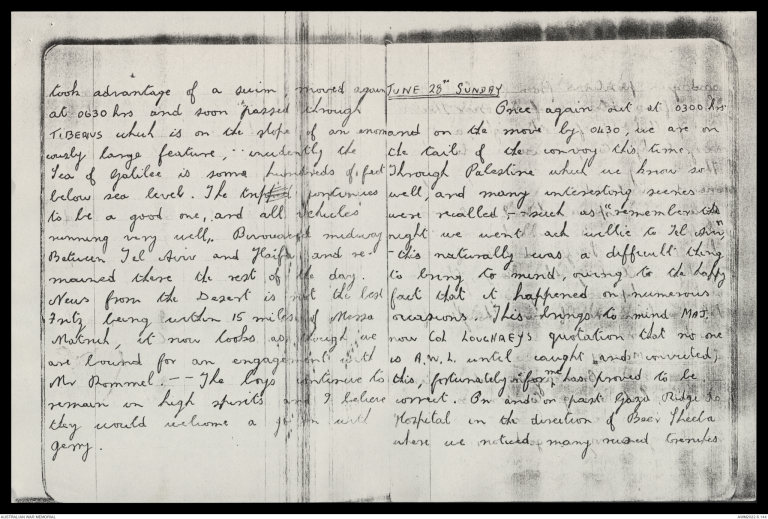 took advantage of a swim, moved again
at 0630 hrs and soon passed through
TIBERIUS which is on the slope of an enorm
ously large feature, incidently the
Sea of Galilee is some hundreds of feet
below sea level. The continues
to be a good one, and all vehicles
running very well. Bivouaced midway
Between Tel Aviv and Haifa, and re-
mained there the rest of the day.
News from the Desert is not the best
Fritz being within 15 miles of Messa
Matruh, it now looks as though we
are bound for an engagement with
Mr Rommel. -- The boys continue to
remain in high spirits and I believe
they would welcome a with
gerry.
JUNE 28th SUNDAY
Once again out at 0300 hrs
and on the move by 0430, we are on
the tail of the convoy this time.
Through Palestine which we know so
well, and many interesting scenes
were recalled - such as "remember the
night we went ack willie to Tel Aviv"
- this naturally was a difficult thing
to bring to mind, owing to the happy
fact that it happened on numerous
occasions. This brings to mind MAJ.
now Col LOUGHREYS quotation that no one
is A.W.L. until caught and convicted,
this, fortunately for me has proved to be
correct. On and on past Gaza Ridge to
Hospital in the direction of Beer Sheeba
where we noticed many trenches
AUSTRALIAN WAR MEMORIAL